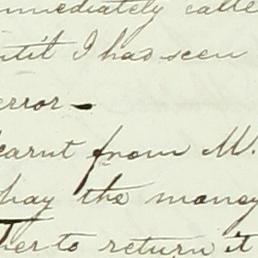 immediately calle
until I had seen
error —
earnt from M.
pay the money
her to return it